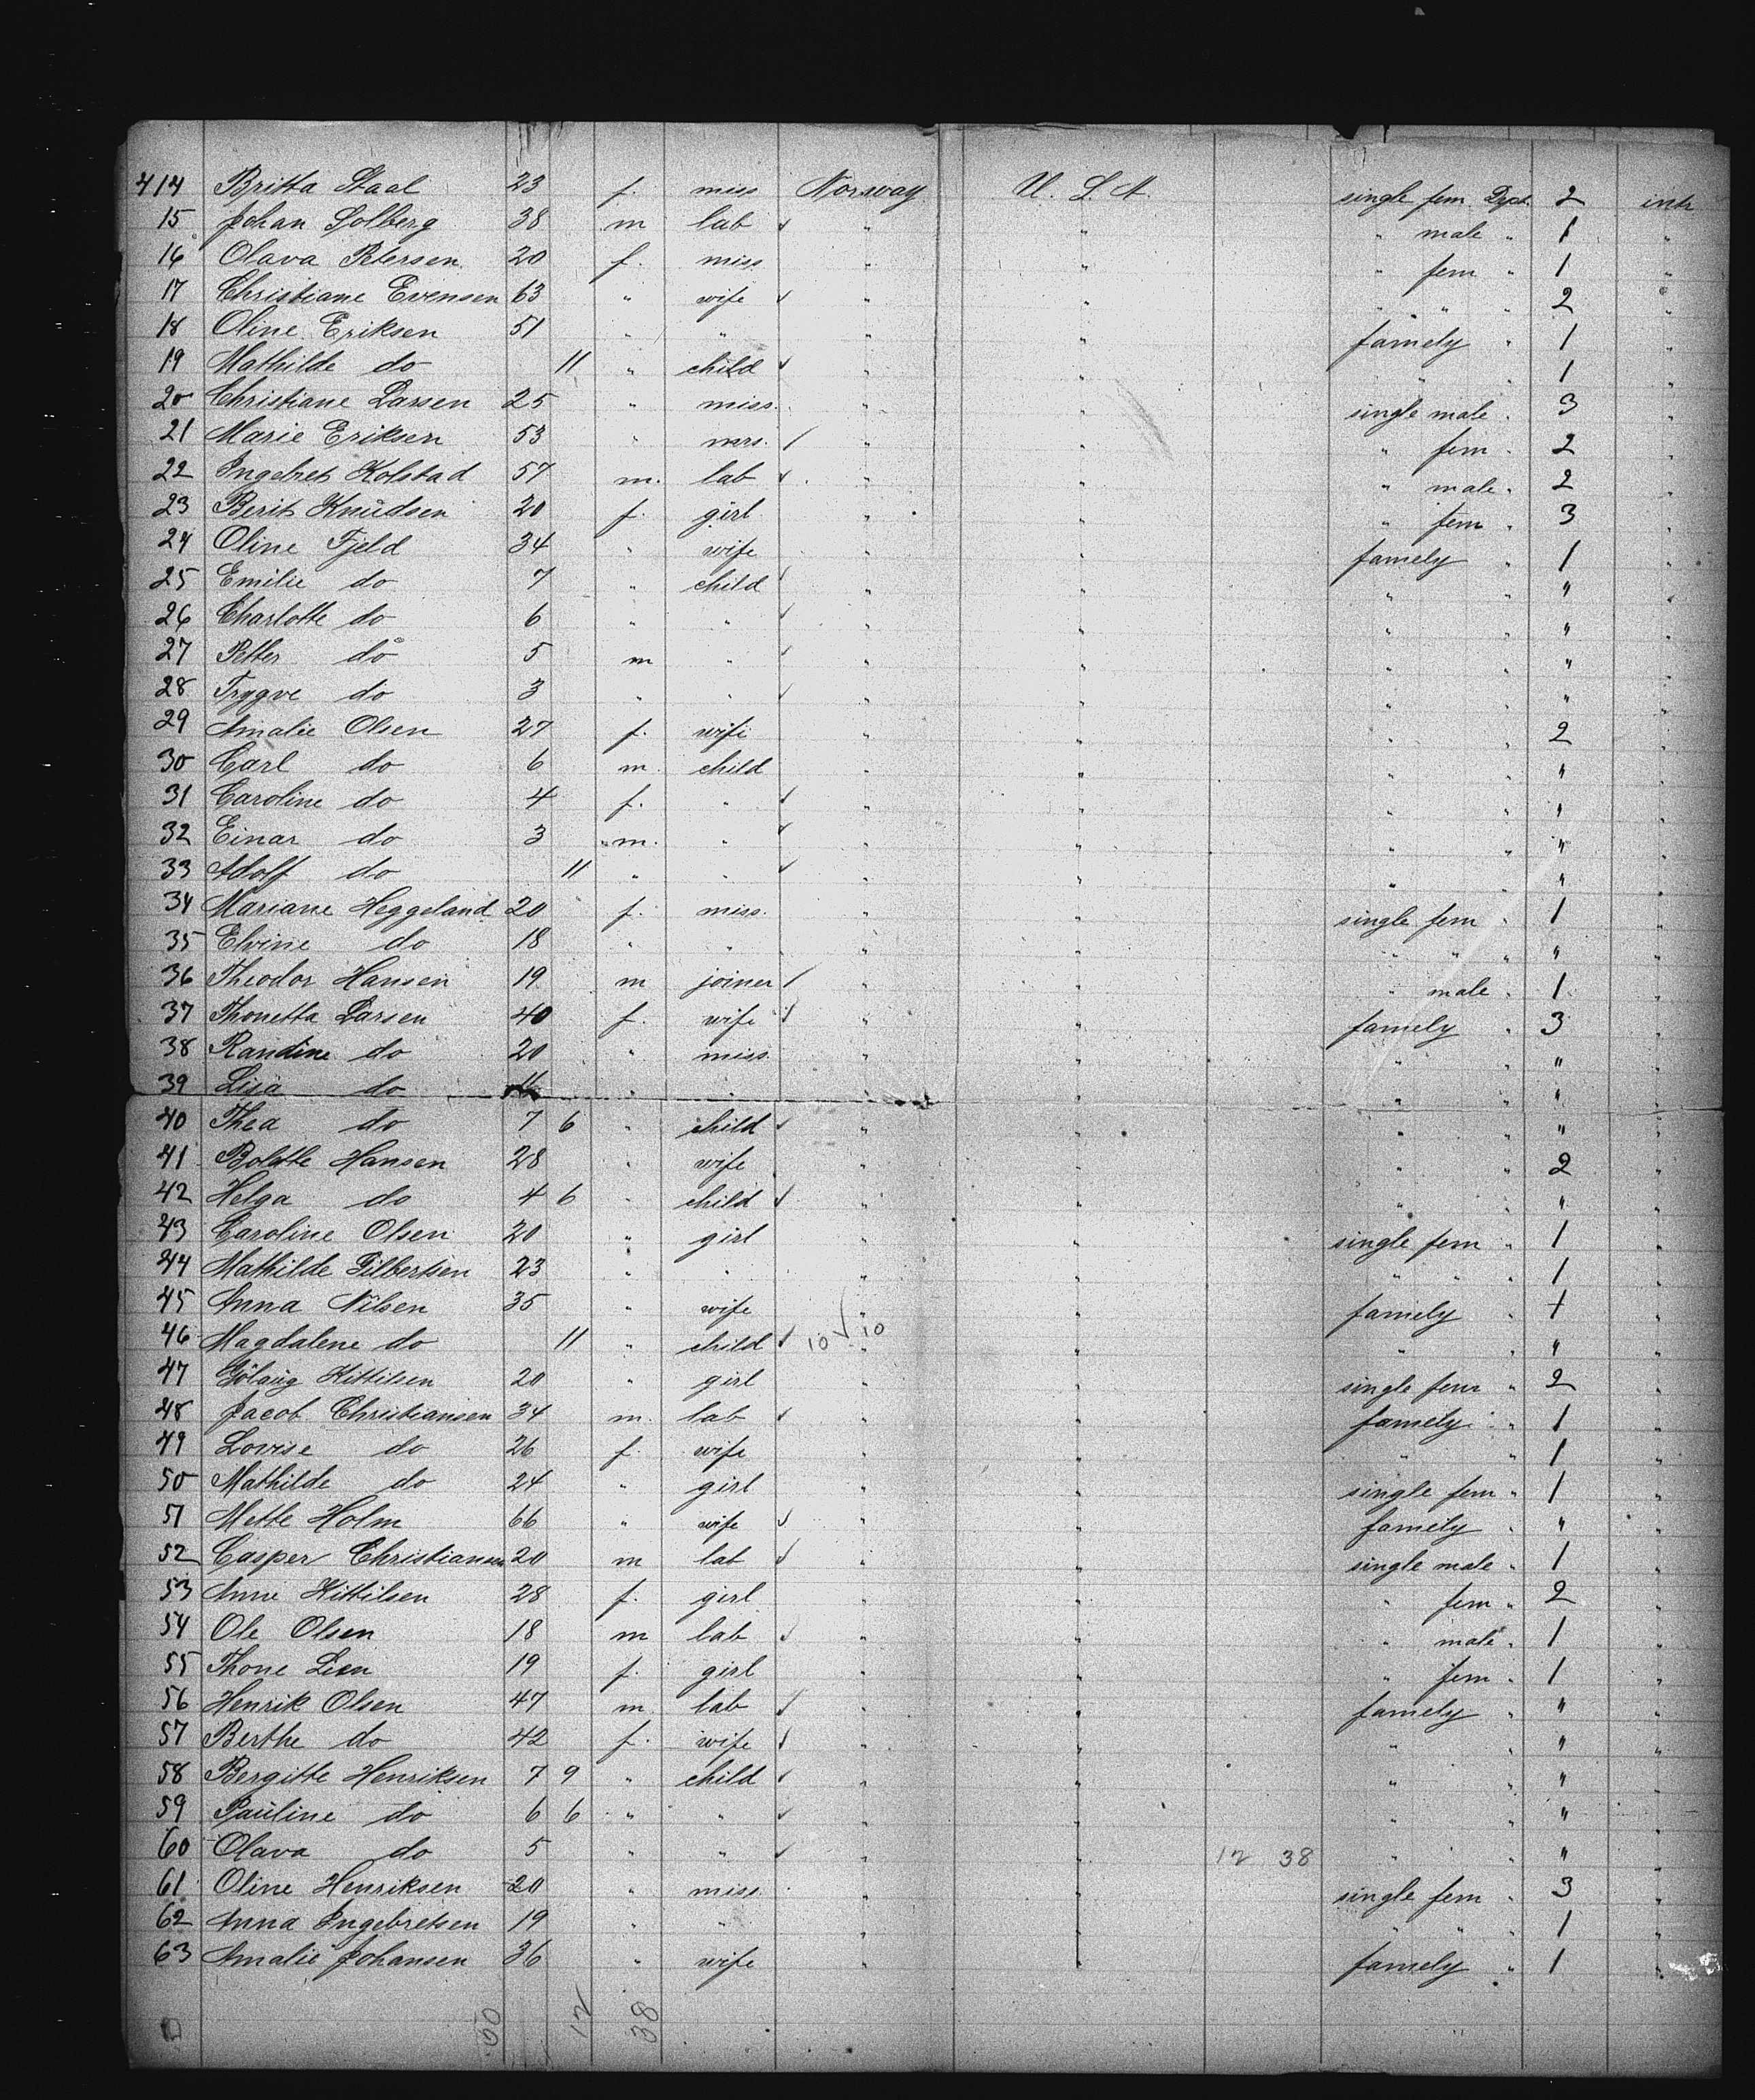 414 Britta Staal 23 f. miss Norway U. S. A. single fem. Dept. 2 intr
15 Johan Solberg 38 m lab ✓ " " " male " 1 "
16 Olava Petersen 20 f. miss " " " fem " 1 "
17 Christiane Evensen 63 " wife ✓ " " " " " 2 "
18 Oline Eriksen 51 " " " " famely " 1 "
19 Mathilde do 11 " child ✓ " " " " 1 "
20 Christiane Larsen 25 " miss. " " single male " 3 "
21 Marie Eriksen 53 " mrs. ✓ " " " fem " 2 "
22 Ingebret Kolstad 57 m. lab ✓ " " " male " 2 "
23 Berit Knudsen 20 f. girl " " " fem " 3 "
24 Oline Fjeld 34 " wife " " famely " 1 "
25 Emilie do 7 " child ✓ " " " " " "
26 Charlotte do 6 " " ✓ " " " " " "
27 Petter do 5 m " ✓ " " " " " "
28 Trygve do 3 " " ✓ " " " " " "
29 Amalie Olsen 27 f. wife " " " " 2 "
30 Carl do 6 m. child " " " " " "
31 Caroline do 4 f. " ✓ " " " " " "
32 Einar do 3 m. " ✓ " " " " " "
33 Adolf do 11 " " ✓ " " " " " "
34 Mariane Heggeland 20 f. miss. " " single fem " 1 "
35 Elvine do 18 " " " " " " " " "
36 Theodor Hansen 19 m joiner ✓ " " " male " 1 "
37 Thonetta Larsen 40 f. wife ✓ " " famely " 3 "
38 Randine do 20 " miss. " " " " " "
39 Lisa do " " " " " " " "
40 Thea do 7 6 " child ✓ " " " " " "
41 Bolette Hansen 28 " wife " " " " 2 "
42 Helga do 4 6 " child ✓ " " " " " "
43 Caroline Olsen 20 " girl " " single fem " 1 "
44 Mathilde Gilbertsen 23 " " " " " " " 1 "
45 Anna Nilsen 35 " wife " " famely " "
46 Magdalene do 11 " child ✓ 10 ✓ 10 " " " " " "
47 Gölaug Kittilsen 20 " girl " " single fem " 2 "
48 Jacob Christiansen 34 m. lab ✓ " " famely " 1 "
49 Lovise do 26 f. wife " " " " 1 "
50 Mathilde do 24 " girl " " single fem " 1 "
51 Mette Holm 66 " wife ✓ " " famely " " "
52 Casper Christiansen 20 m lab ✓ " " single male " 1 "
53 Anne Kittilsen 28 f. girl " " " fem " 2 "
54 Ole Olsen 18 m lab ✓ " " " male " 1 "
55 Thone Lien 19 f. girl " " " fem " 1 "
56 Henrik Olsen 47 m lab ✓ " " famely " " "
57 Berthe do 42 f. wife ✓ " " " " " "
58 Bergitte Henriksen 7 9 " child ✓ " " " " " "
59 Pauline do 6 6 " " ✓ " " " " " "
60 Olava do 5 " " ✓ " " 12 38 " " " "
61 Oline Henriksen 20 " miss. " " single fem " 3 "
62 Anna Ingebretsen 19 " " " " " " " 1 "
63 Amalie Johansen 36 " wife " " famely " 1 "
50 12 38